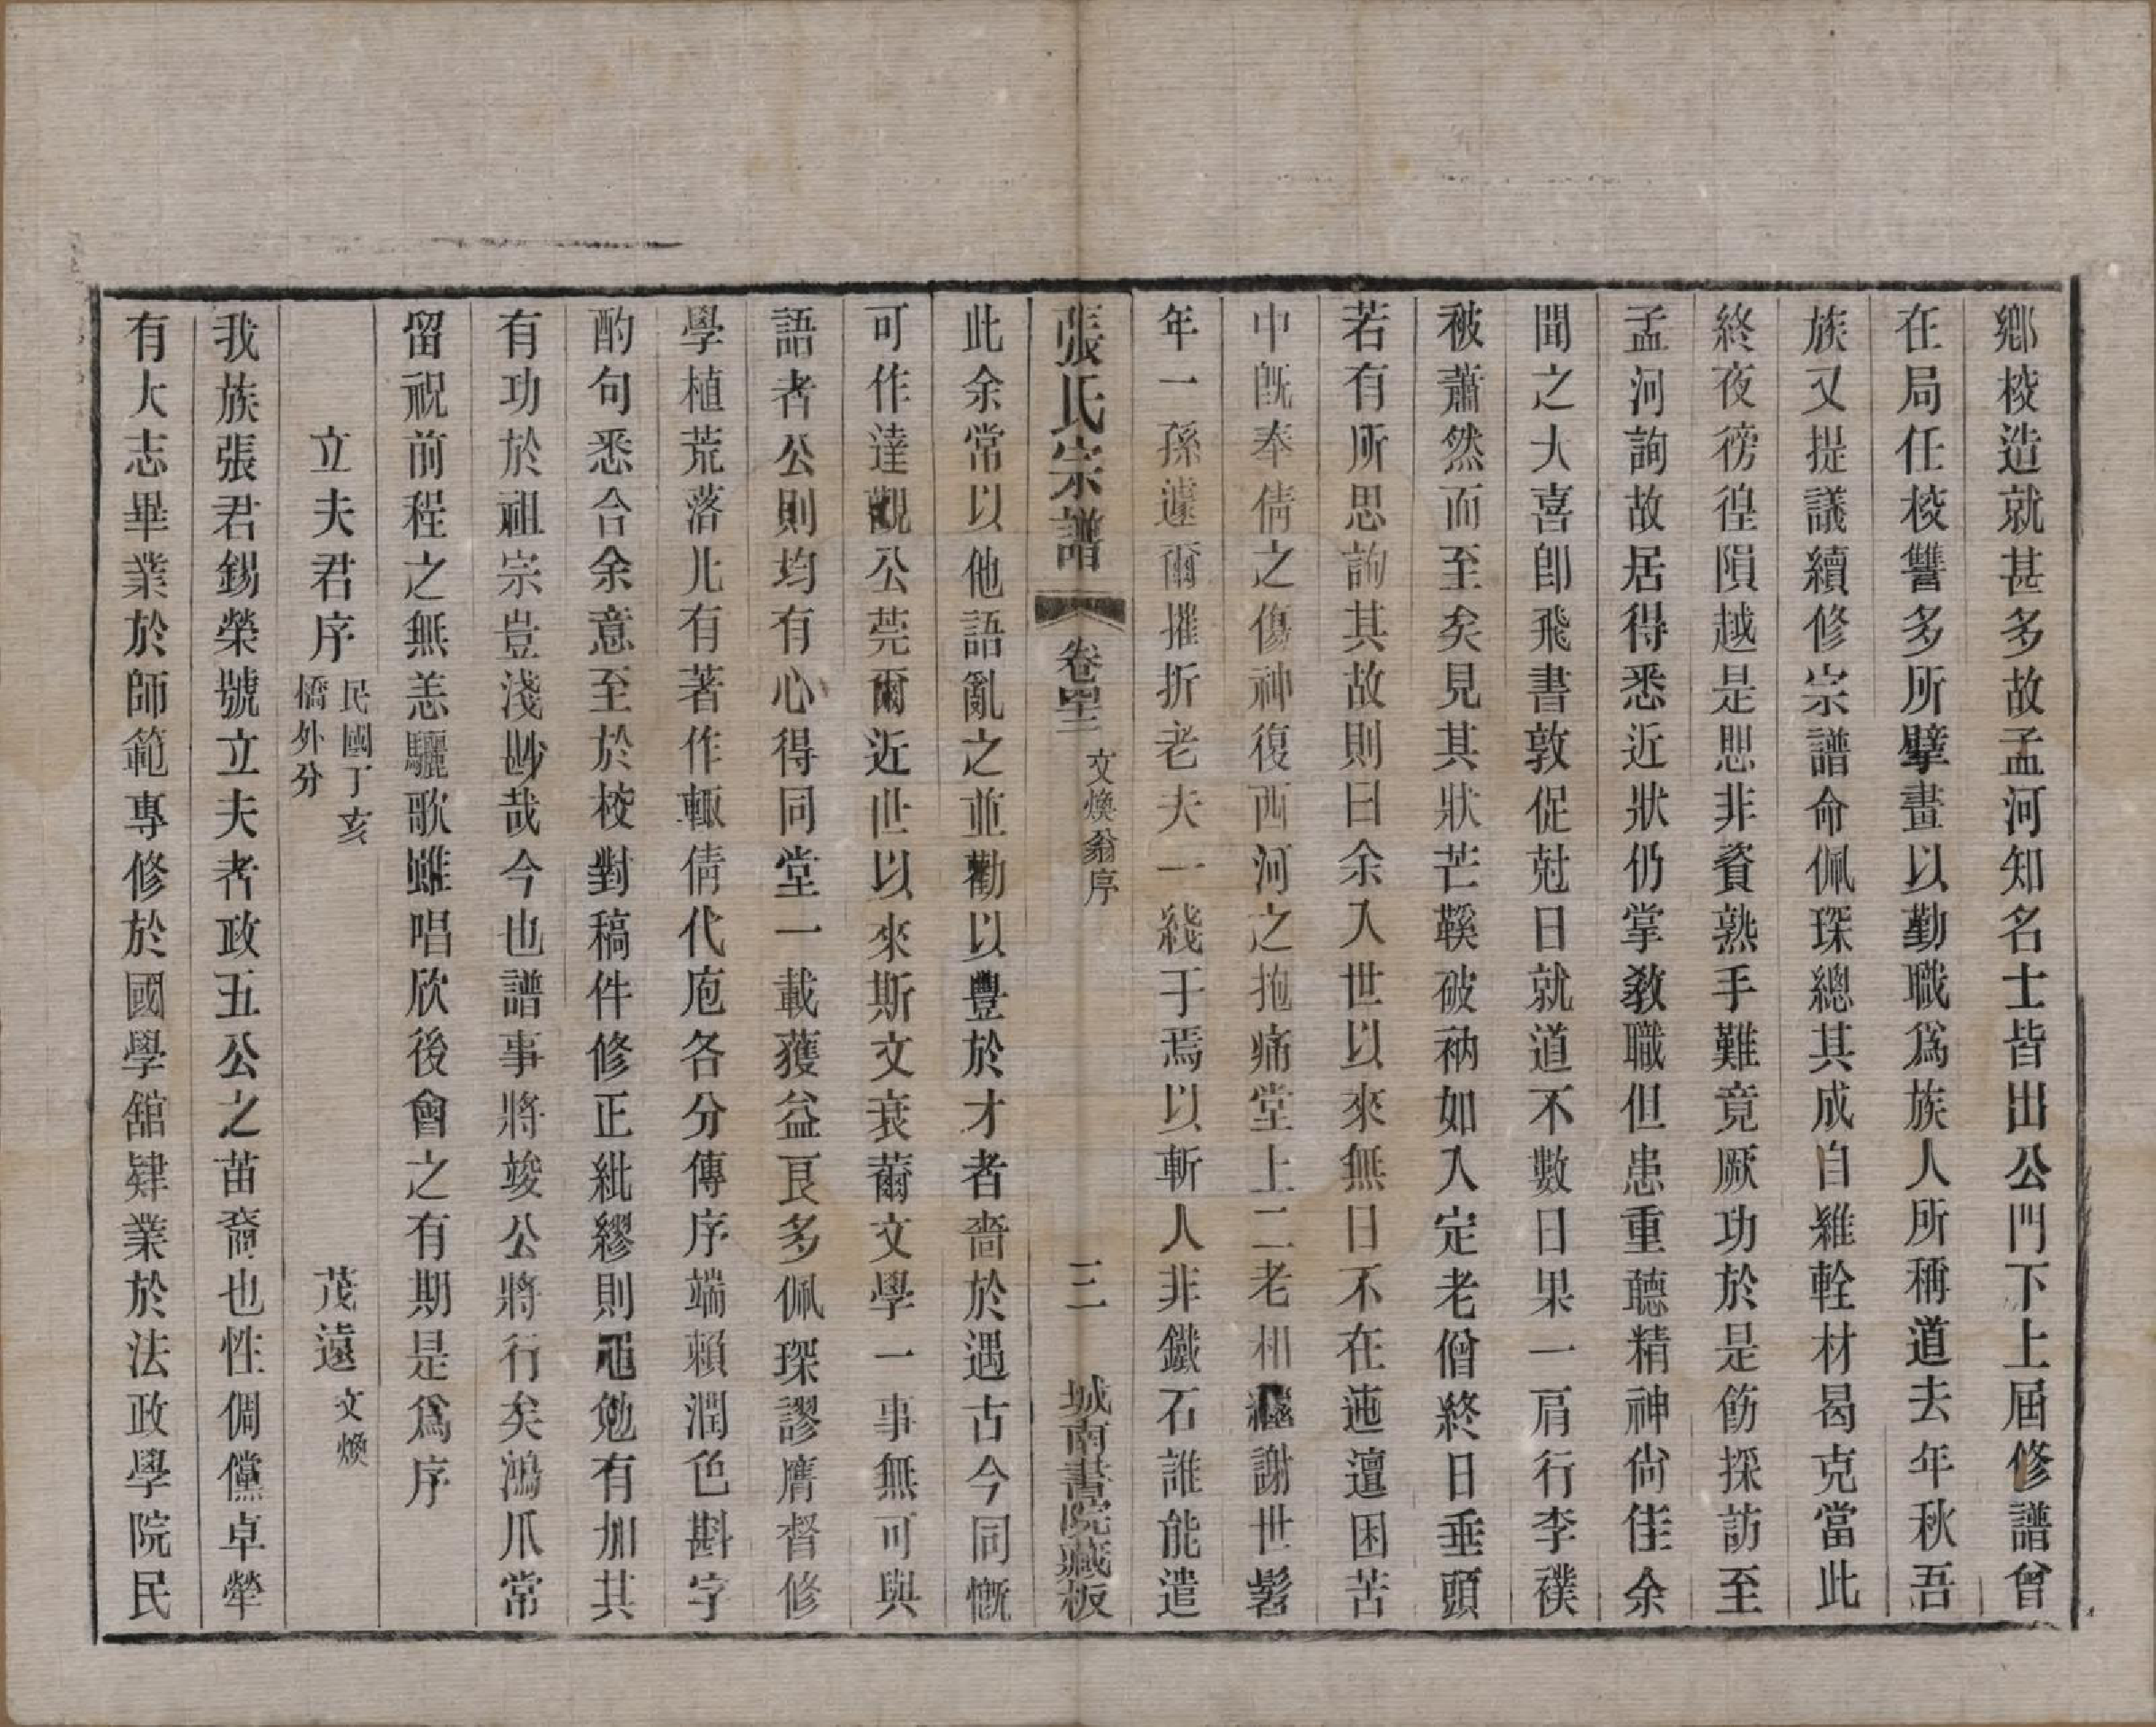 鄉校造就甚多故孟河知名士皆出公門下上屆修譜曾
在局任校讐多所擘畫以勤職爲族人所稱道去年秋吾
族又提議續修宗譜命佩琛總其成自維輇材曷克當此
終夜徬徨隕越是思非資熟手難竟厥功於是飭採訪至
孟河詢故居得悉近狀仍掌敎職但患重聽精神尙佳余
聞之大喜卽飛書敦促尅日就道不數日果一肩行李襆
被蕭然而至矣見其狀芒鞵破衲如入定老僧終日垂頭
若有所思詢其故則曰余入世以來無日不在迍邅困苦
中旣奉倩之傷神復西河之抱痛堂上二老相繼謝世髫
年一孫遽爾摧折老夫一綫于焉以斬人非鐵石誰能遣
張氏宗譜 卷四十三 文煥翁序 三 城南書院藏板
此余常以他語亂之並勸以豐於才者嗇於遇古今同慨
可作達觀公莞爾近世以來斯文衰薾文學一事無可與
語者公則均有心得同堂一載獲益良多佩琛謬膺督修
學植荒落凡有著作輒倩代庖各分傳序端賴潤色斟字
酌句悉合余意至於校對稿件修正紕繆則黽勉有加其
有功於祖宗豈淺尠哉今也譜事將竣公將行矣鴻爪常
留祝前程之無恙驪歌雖唱欣後會之有期是爲序
立夫君序 民國丁亥 橋外分 茂遠 文煥
我族張君錫榮號立夫者政五公之苗裔也性倜儻卓犖
有大志畢業於師範專修於國學舘肄業於法政學院民